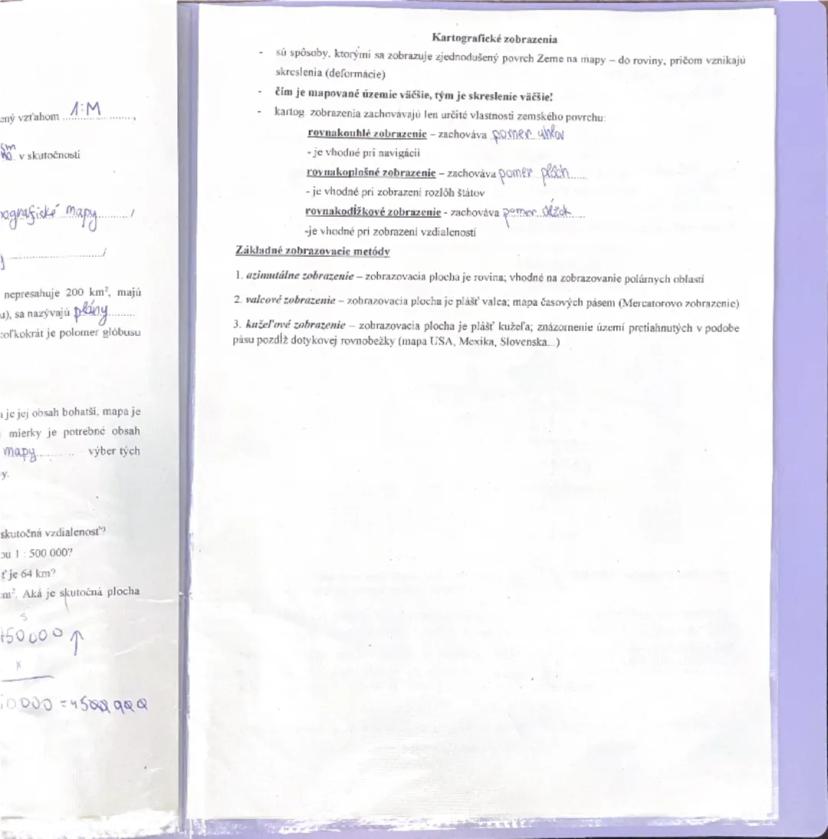 ený vzťahom 1:M ,
v skutočnosti
mapy /
/
nepresahuje 200 km², majú
u), sa nazývajú plány
koľkokrát je polomer glóbusu
a je jej obsah bohatší, mapa je
mierky je potrebné obsah
mapy výber tých
y.
skutočná vzdialenosť?
ou 1 : 500 000?
ť je 64 km?
m². Aká je skutočná plocha
Kartografické zobrazenia
- sú spôsoby, ktorými sa zobrazuje zjednodušený povrch Zeme na mapy – do roviny, pričom vznikajú
skreslenia (deformácie)
- čím je mapované územie väčšie, tým je skreslenie väčšie!
- kartog. zobrazenia zachovávajú len určité vlastnosti zemského povrchu:
rovnakouhlé zobrazenie – zachováva pomer uhlov
- je vhodné pri navigácii
rovnakoplošné zobrazenie – zachováva pomer plôch
- je vhodné pri zobrazení rozlôh štátov
rovnakodĺžkové zobrazenie - zachováva pomer dĺžok
-je vhodné pri zobrazení vzdialeností
Základné zobrazovacie metódy
1. azimutálne zobrazenie – zobrazovacia plocha je rovina; vhodné na zobrazovanie polárnych oblastí
2. valcové zobrazenie – zobrazovacia plocha je plášť valca; mapa časových pásem (Mercatorovo zobrazenie)
3. kužeľové zobrazenie – zobrazovacia plocha je plášť kužeľa; znázornenie území pretiahnutých v podobe
pásu pozdĺž dotykovej rovnobežky (mapa USA, Mexika, Slovenska...)